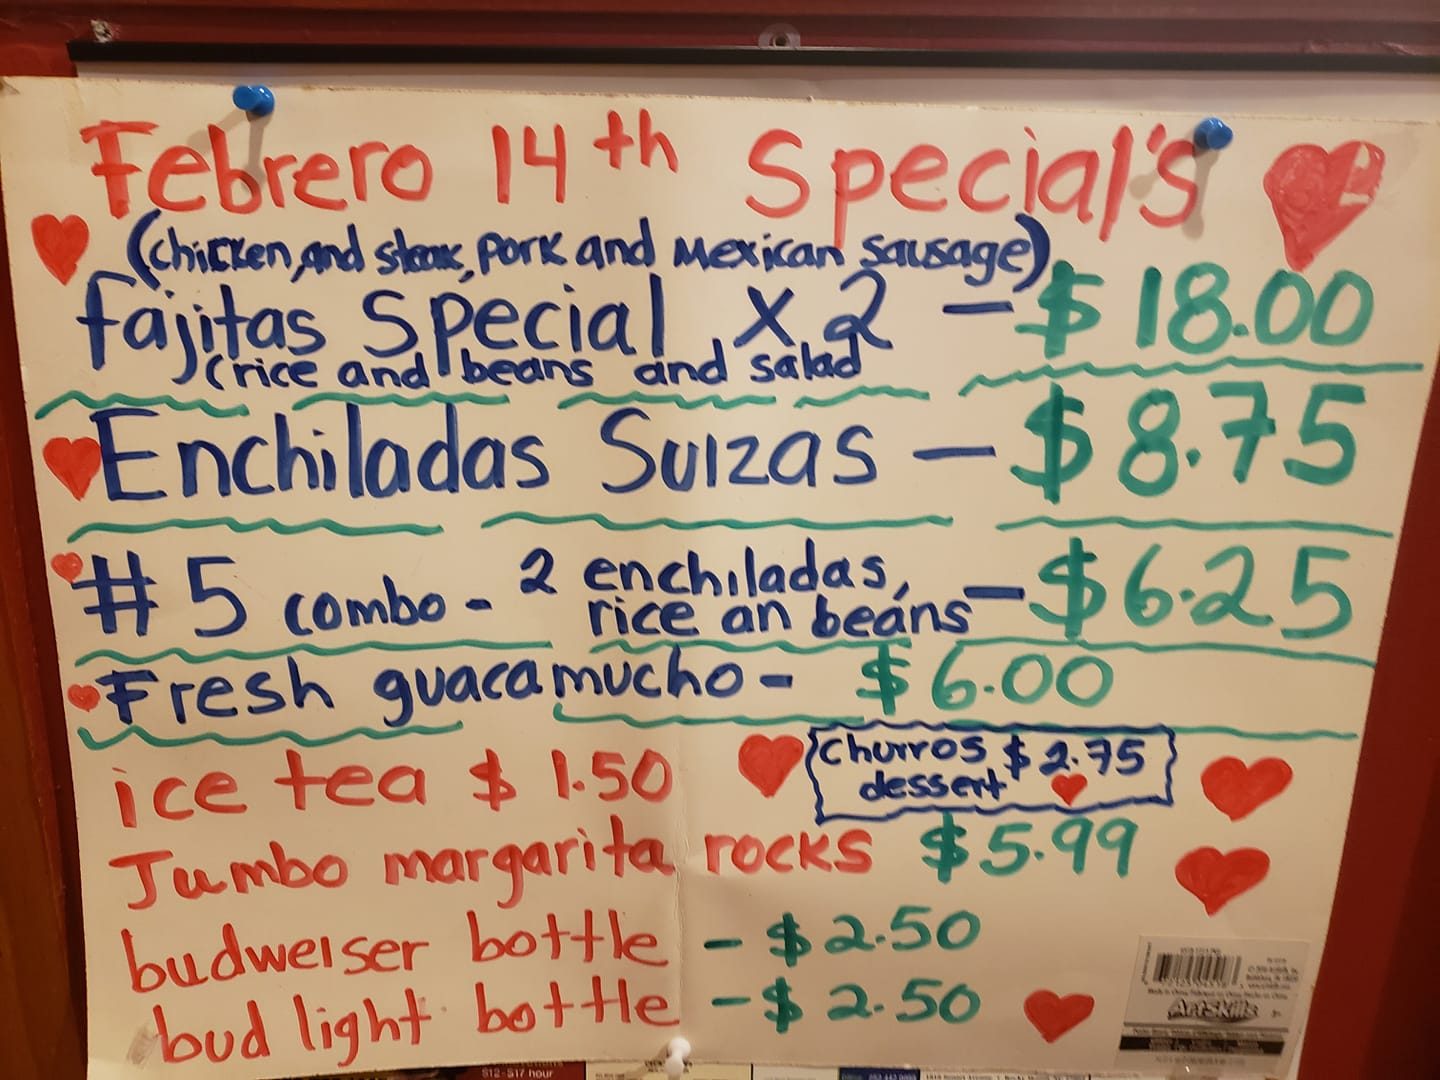 Febrero 14th Special's
(chicken, and steak, pork and Mexican sausage)
fajitas Special x 2 - $ 18.00
(rice and beans and salad
Enchiladas Suizas - $ 8.75
#5 combo - 2 enchiladas, - $6.25
rice an beans
Fresh guacamucho - $6.00
Churros $ 2.75
dessert
ice tea $ 1.50
Jumbo margarita rocks $5.99
budweiser bottle - $2.50
bud light bottle - $ 2.50
ArtSkills
$12-$17 hour